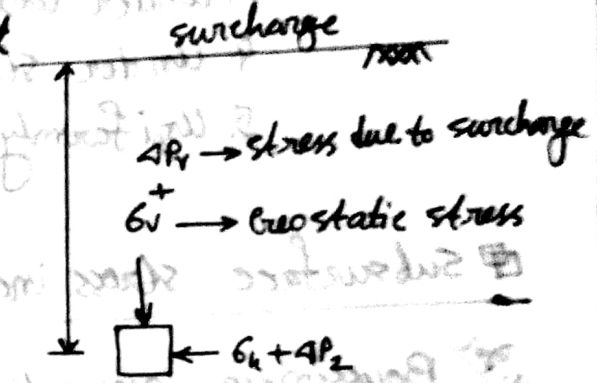 surcharge
ΔPᵥ → stress due to surcharge
+
σᵥ → Geostatic stress
← σₕ + ΔP₂